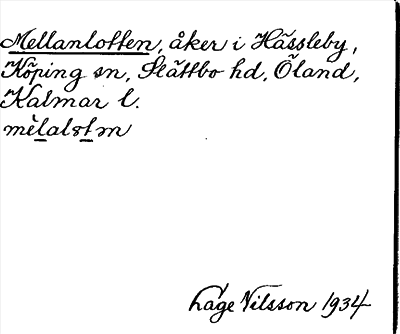 Mellanlotten, åker i Hässleby,
Köping sn, Slättbo hd, Öland,
Kalmar l.
mèlalstn
Låge Nilsson 1934